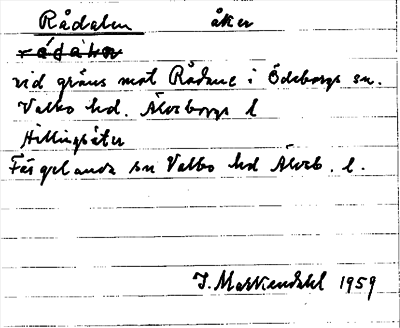 Rådalen åker
vid gräns mot Rådane i Ödeborgs sn.
Valbo hd. Älvsborgs l
Hillingsäter
Färgelanda sn Valbo hd Älvsb. l.
J. Markendahl 1959